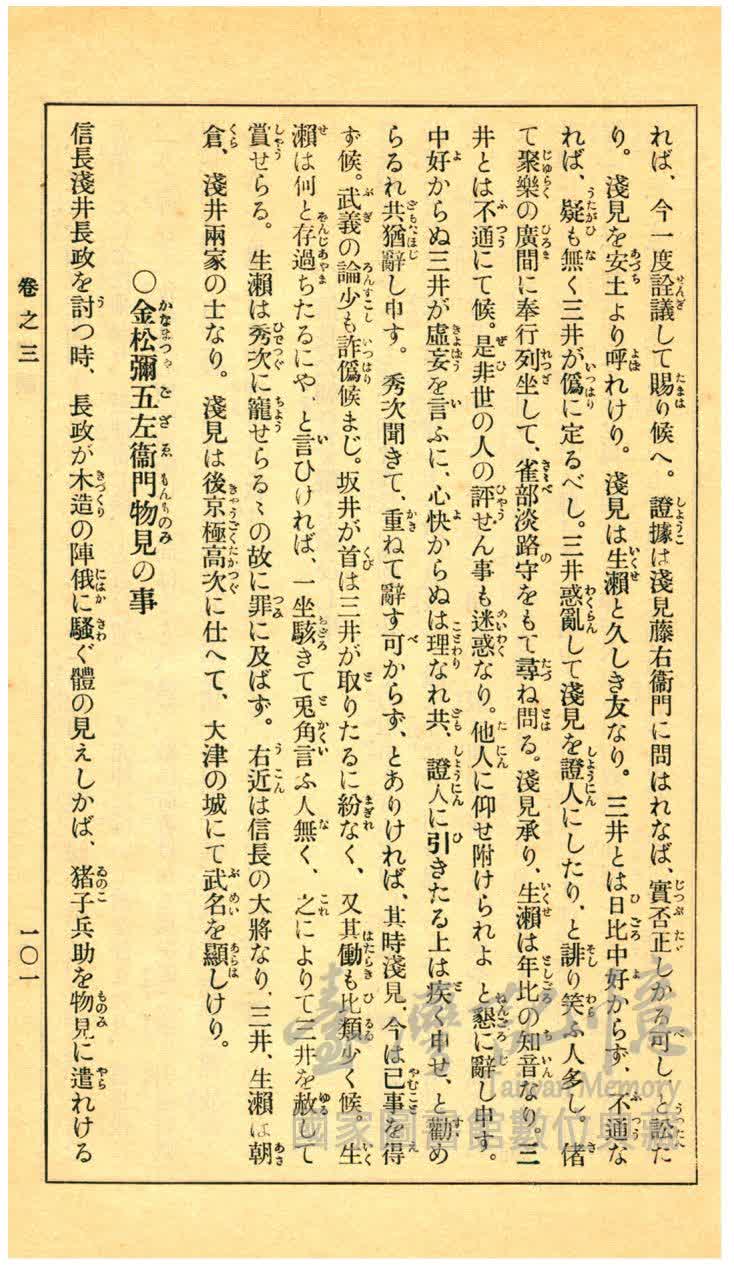 れば、今一度詮議して賜り候へ。證據は淺見藤右衞門に問はれなば、實否正しかる可しと訟た
り。淺見を安土より呼れけり。淺見は生瀨と久しき友なり。三井とは日比中好からず、不通な
れば、疑も無く三井が僞に定るべし。三井惑亂して淺見を證人にしたり、と誹り笑ふ人多し。偖
て聚樂の廣間に奉行列坐して、雀部淡路守をもて尋ね問る。淺見承り、生瀨は年比の知音なり。三
井とは不通にて候。是非世の人の評せん事も迷惑なり。他人に仰せ附けられよと懇に辭し申す。
中好からぬ三井が虛妄を言ふに、心快からぬは理なれ共、證人に引きたる上は疾く申せ、と勸め
らるれ共猶辭し申す。秀次聞きて、重ねて辭す可からず、とありければ、其時淺見、今は已事を得
ず候。武義の論少も詐僞候まじ。坂井が首は三井が取りたるに紛なく、又其働も比類少く候。生
瀨は何と存過ちたるにや、と言ひければ、一坐駭きて兎角言ふ人無く、之によりて三井を赦して
賞せらる。生瀨は秀次に寵せらるゝの故に罪に及ばず。右近は信長の大將なり、三井、生瀨は朝
倉、淺井兩家の士なり。淺見は後京極高次に仕へて、大津の城にて武名を顯しけり。
〇金松彌五左衞門物見の事
信長淺井長政を討つ時、長政が木造の陣俄に騷ぐ體の見えしかば、猪子兵助を物見に遣れける
卷之三
一〇一
臺灣記憶
Taiwan Memory
國家圖書館數位典藏